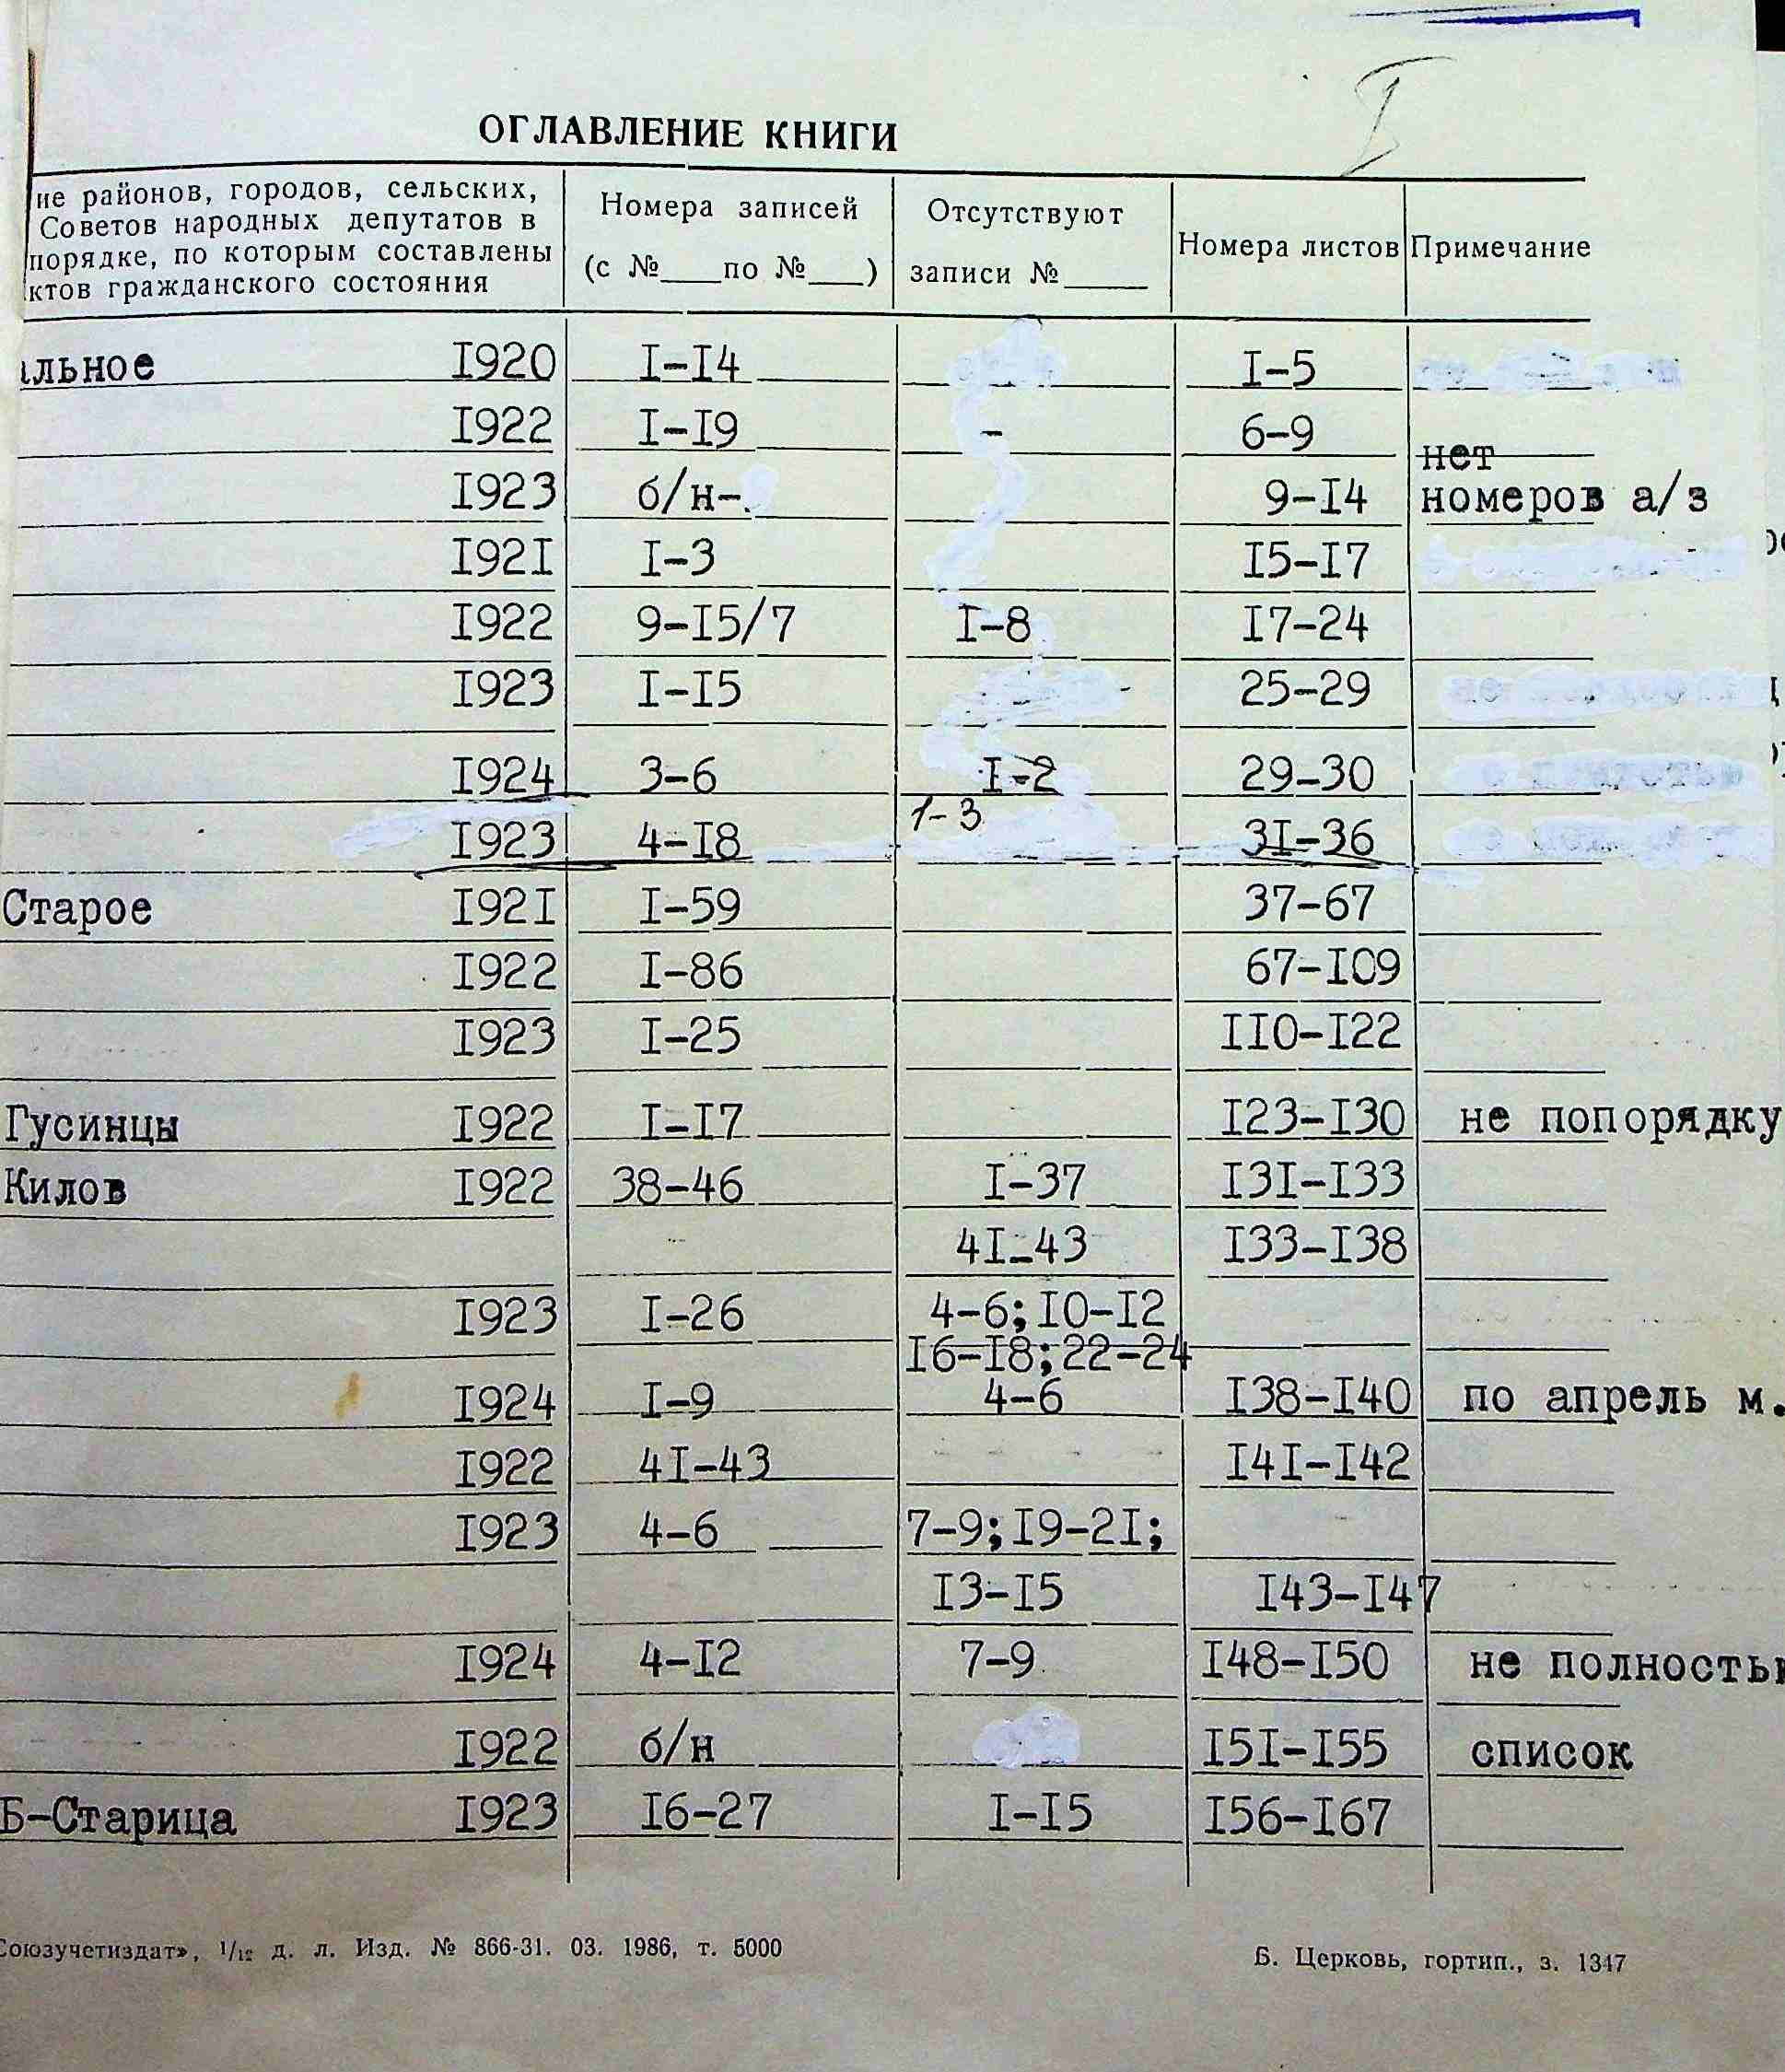 I
ОГЛАВЛЕНИЕ КНИГИ
ие районов, городов, сельских,
Советов народных депутатов в
порядке, по которым составлены
ктов гражданского состояния
Номера записей
(с №___по №___)
Отсутствуют
записи №_____
Номера листов
Примечание
альное I920 I-I4 I-5
I922 I-I9 - 6-9
нет
I923 б/н-. 9-I4 номеров а/з
I92I I-3 I5-I7
I922 9-I5/7 I-8 I7-24
I923 I-I5 - 25-29
I924 3-6 I-2 29-30
1-3
I923 4-I8 3I-36
Старое I92I I-59 37-67
I922 I-86 67-I09
I923 I-25 II0-I22
Гусинцы I922 I-I7 I23-I30 не попорядку
Килов I922 38-46 I-37 I3I-I33
4I-43 I33-I38
I923 I-26 4-6;I0-I2
I6-I8;22-24
I924 I-9 4-6 I38-I40 по апрель м.
I922 4I-43 I4I-I42
I923 4-6 7-9;I9-2I;
I3-I5 I43-I47
I924 4-I2 7-9 I48-I50 не полностью
I922 б/н I5I-I55 список
Б-Старица I923 I6-27 I-I5 I56-I67
Союзучетиздат», 1/12 д. л. Изд. № 866-31. 03. 1986, т. 5000
Б. Церковь, гортип., з. 1347